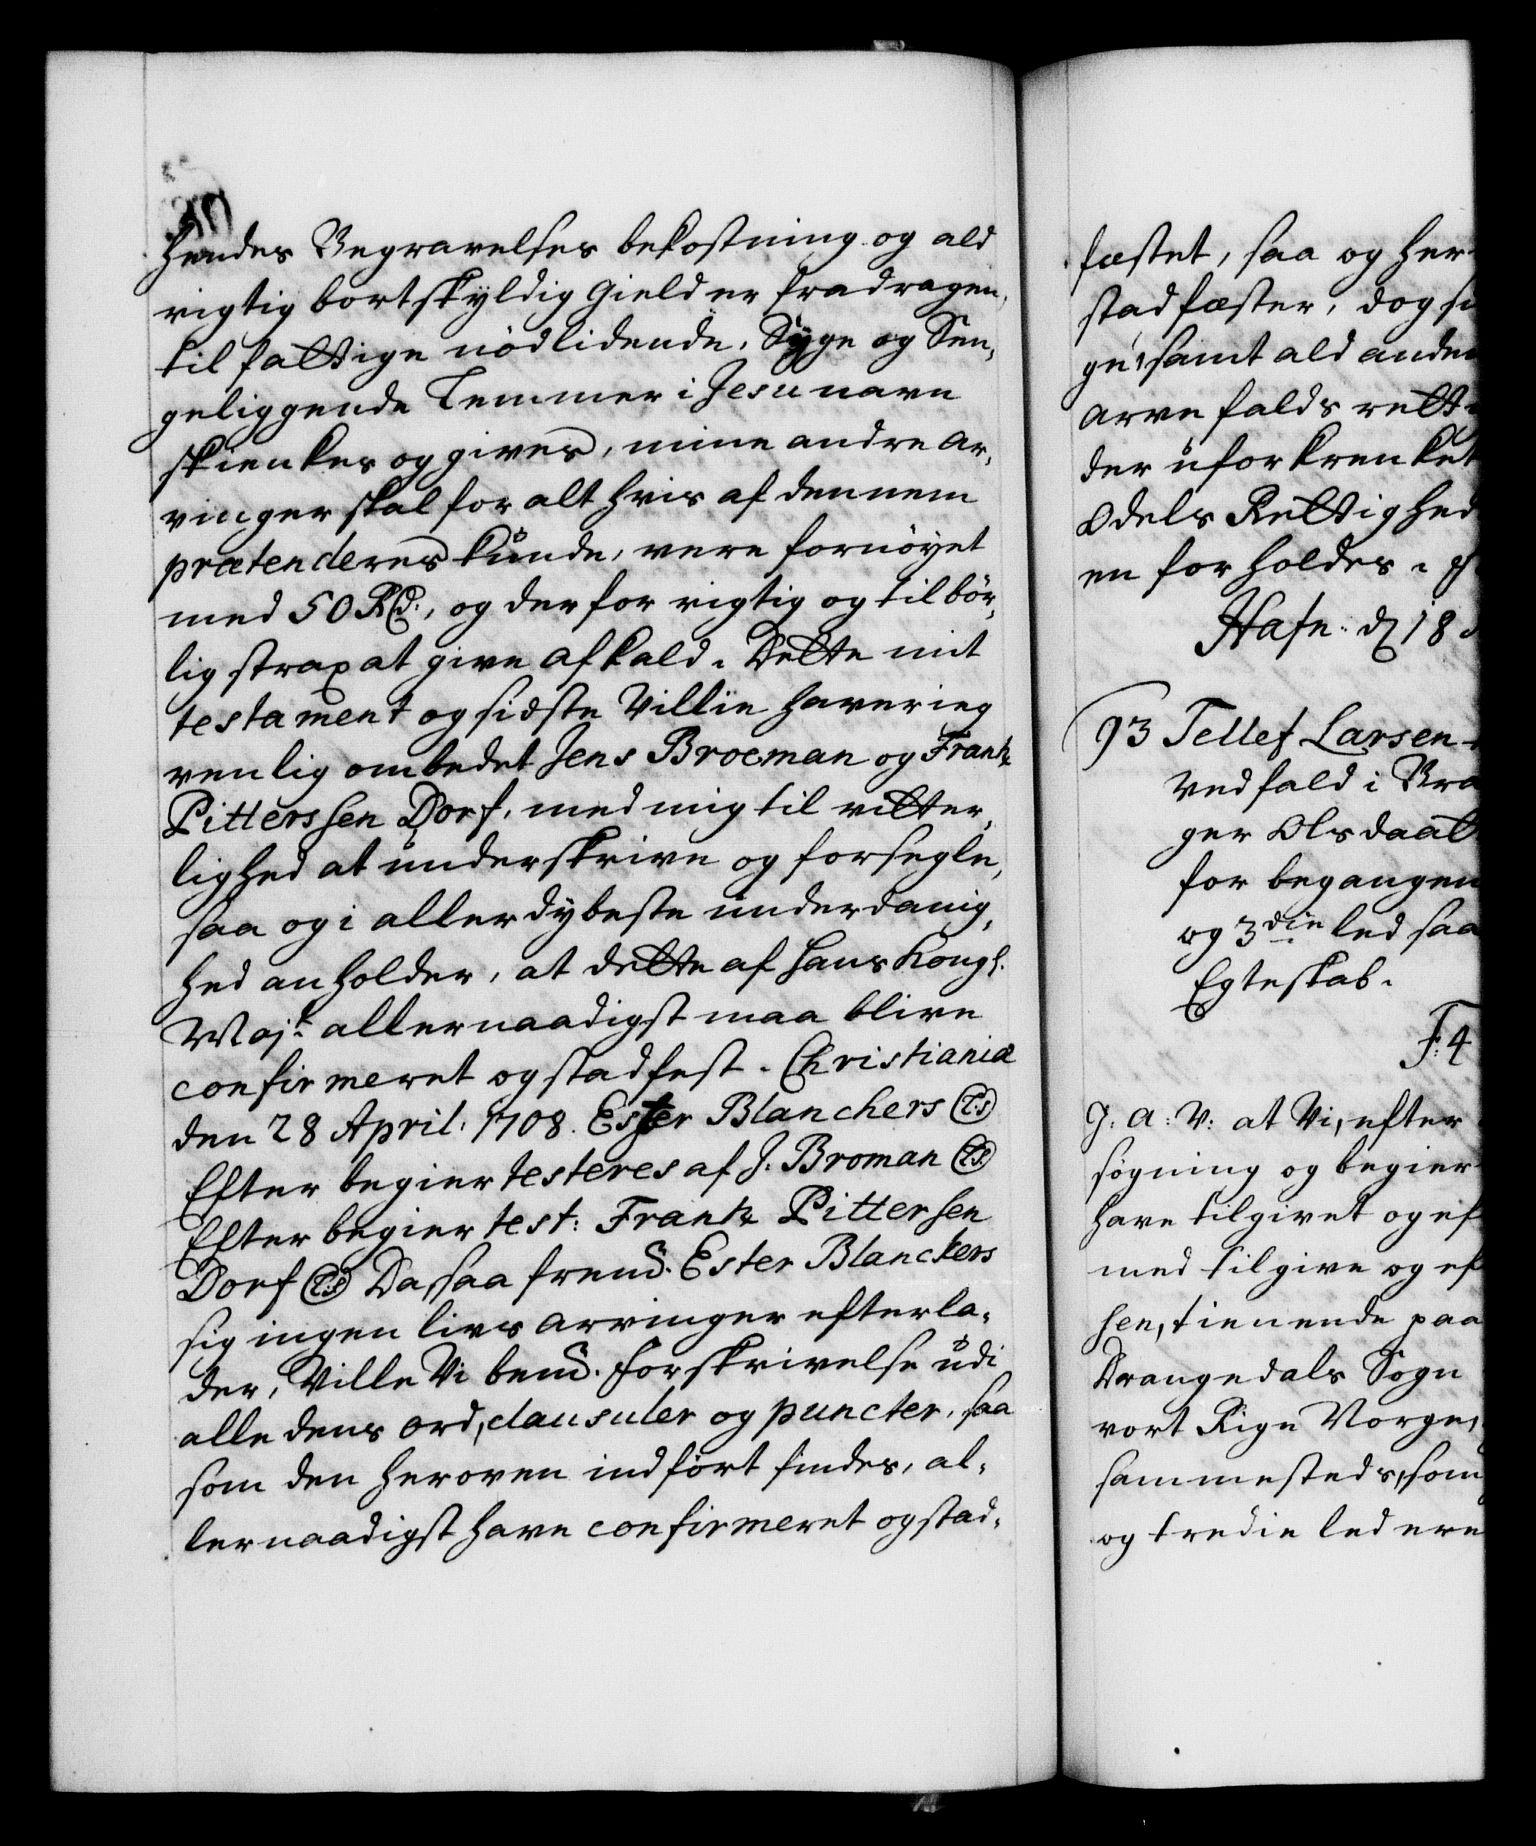 hendes Begravelses bekostning og ald
rigtig bortskyldig Gield er fradragen,
til fattige nödlidende, Syge og Sen,
geliggende Lemmer i Jesu navn
skienkes og gives, mine andre ar,
vinger skal for alt hvis af dennem
prætenderes kunde, vere fornöyet
med 50 Rd:, og derfor rigtig og tilbör,
lig strax at give afkald. Dette mit
testament og sidste Villie haver ieg
venlig ombedet Jens Broeman og Frank
Pitterssen Dorf, med mig til vitter,
lighed at underskrive og forsegle,
saa og i allerdybeste underdanig,
hed anholder, at dette af Hans Kongl.
Majt. allernaadigst maa blive
confirmeret og stadfest. Christiania
den 28 April. 1708. Ester Blanchers L:S
Efter begier testeres af J. Broman L:S
Efter begier test: Frank Pittersen
Dorf L:S Da saa fremd. Ester Blanckers
sig ingen livs arvinger efterla,
der, Ville Vi bemd. forskrivelse udi
alle dens ord, clausuler og puncter, saa
som den heroven indfört findes, al,
lernaadigst have confirmeret og stad,
fæstet, saa og her
stadfæster, dog
samt ald anden
arve falds rett
der uforkrenket
Odels Rettighed
en forholdes.
Hafn: d 18
93 Tellef Larsen
Vedfald i Bra
ger Olsdaat
for begangen
og 3die led saa
Egteskab.
F: 4
G: A: V: at Vi, efter
søgning og begier
have tilgivet og ef
med tilgive og ef
sen, tienende paa
Drangedals Sogn
vort Rige Norge,
sammesteds, som
og tredie led ere